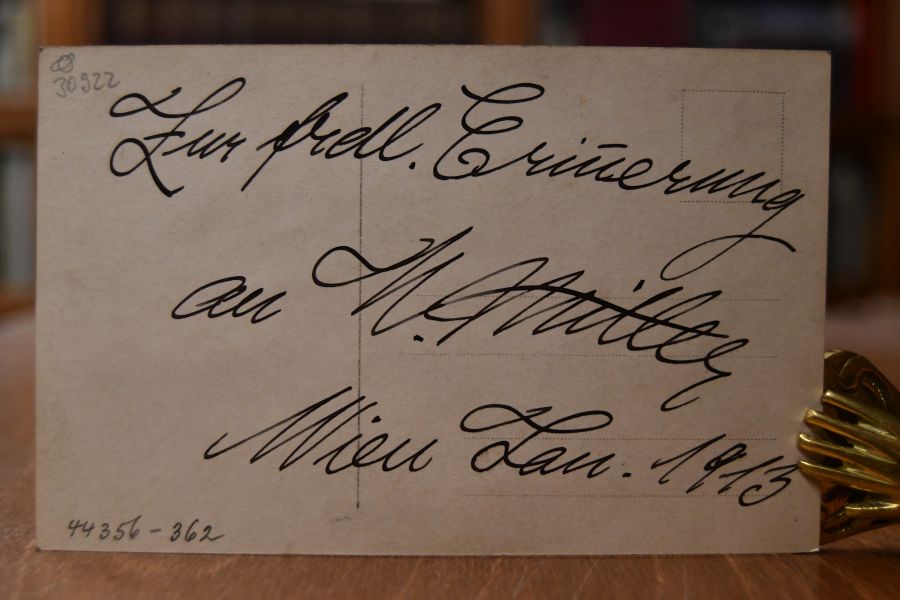 30922
Zur frdl. Erin̄erung
an W. Miller
Wien Jan. 1913
44356-362